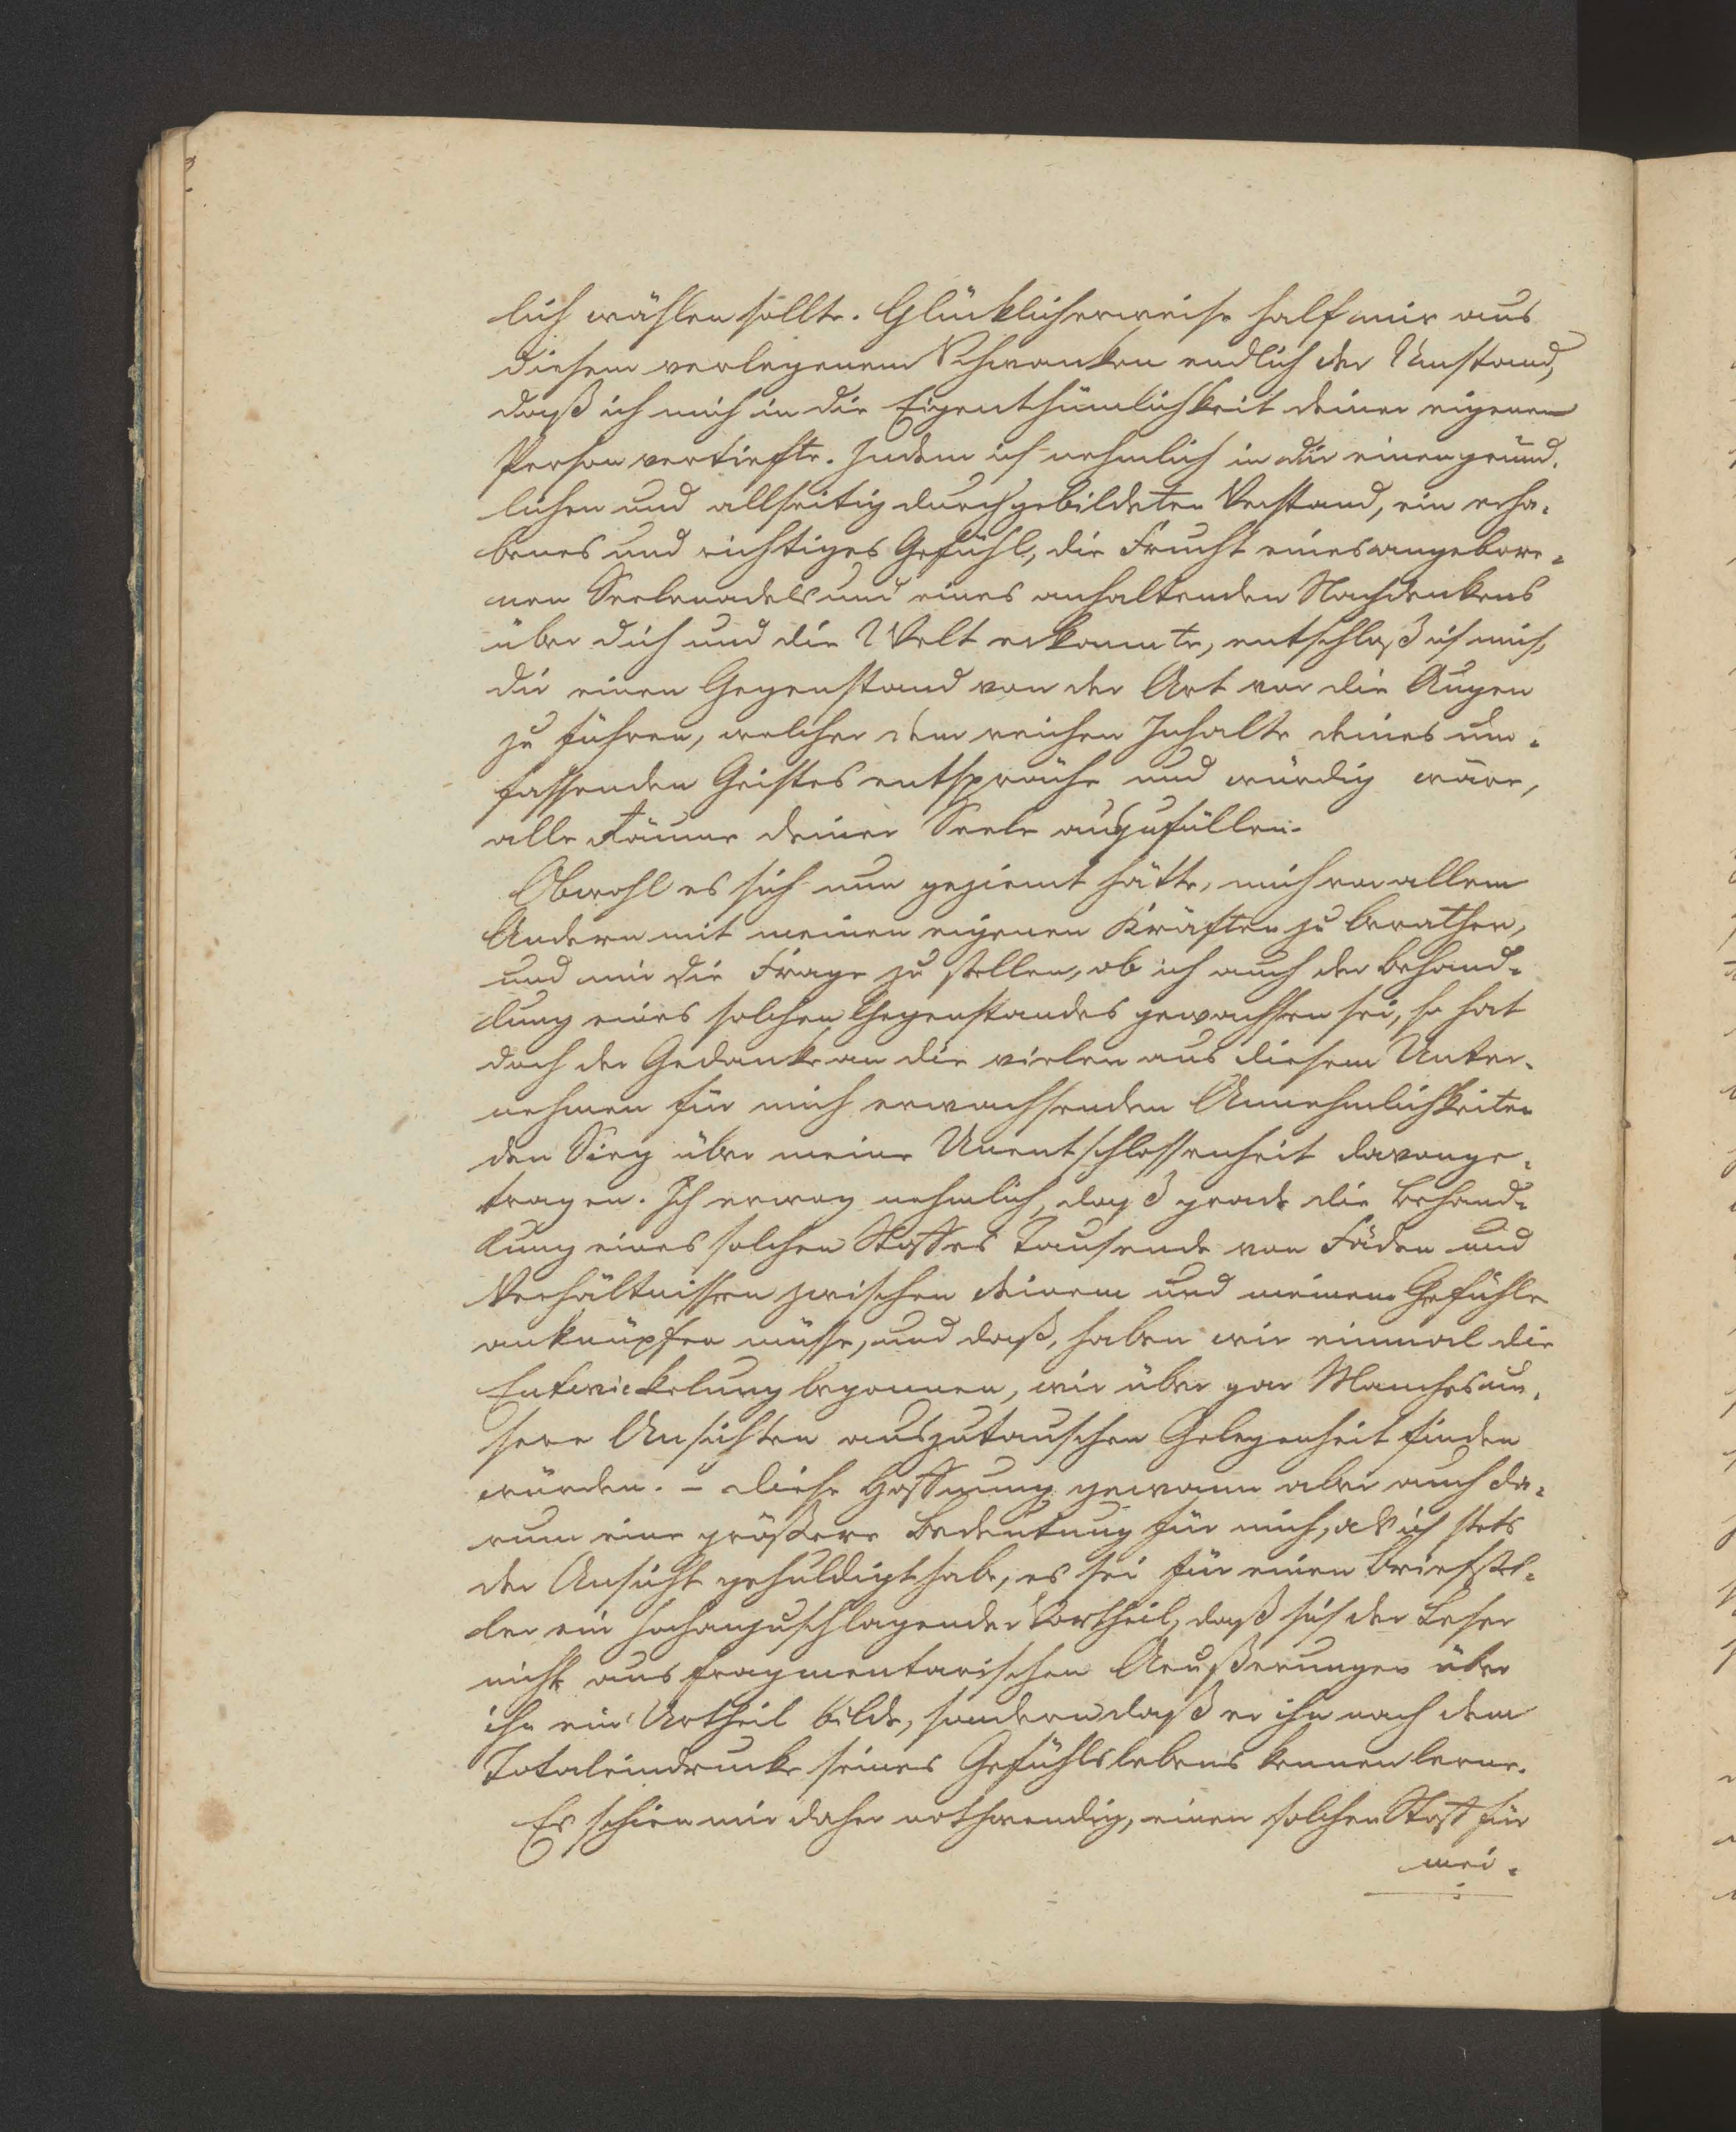 lich wählen sollte. Glücklicherweise half mir aus
diesem verlegenem Schwanken endlich der Umstand,
daß ich mich in die Eigenthümlichkeit deiner eigenen
Person vertiefte. Indem ich nehmlich in dir einen gründ-
lichen und allseitig durchgebildeten Verstand, ein erha-
benes und richtiges Gefühl, die Frucht eines angebore-
nen Seelenadels und eines anhaltenden Nachdenkens
über dich und die Welt erkannte, entschloß ich mich,
dir einen Gegenstand von der Art vor die Augen
zu führen, welcher dem reichen Inhalte deines um-
fassenden Geistes entspräche und würdig wäre,
alle Räume deiner Seele auszufüllen.
Obwohl es sich nun geziemt hätte, mich vor allem
Andern mit meinen eigenen Kräften zu berathen,
und mir die Frage zu stellen, ob ich auch der Behand-
lung eines solchen Gegenstandes gewachsen sei, so hat
doch der Gedanke an die vielen aus diesem Unter-
nehmen für mich erwachsenden Annehmlichkeiten
den Sieg über meine Unentschlossenheit davonge-
tragen. Ich erwog nehmlich, daß grade die Behand-
lung eines solchen Stoffes Tausende von Fäden und
Verhältnissen zwischen deinem und meinem Gefühle
anknüpfen müsse, und daß, haben wir einmal die
Entwickelung begonnen, wir über gar Manches un-
sere Ansichten auszutauschen Gelegenheit finden
würden. – Diese Hoffnung gewann aber auch da-
rum eine größere Bedeutung für mich, als ich stets
der Ansicht gehuldigt habe, es sei für einen Briefstel-
ler ein hochanzuschlagender Vortheil, daß sich der Leser
nicht aus fragmentarischen Aeußerungen über
ihn ein Urtheil bilde, sondern daß er ihn nach dem
Totaleindrucke seines Gefühlslebens kennen lerne.
Es schien mir daher nothwendig, einen solchen Stoff für
mei-